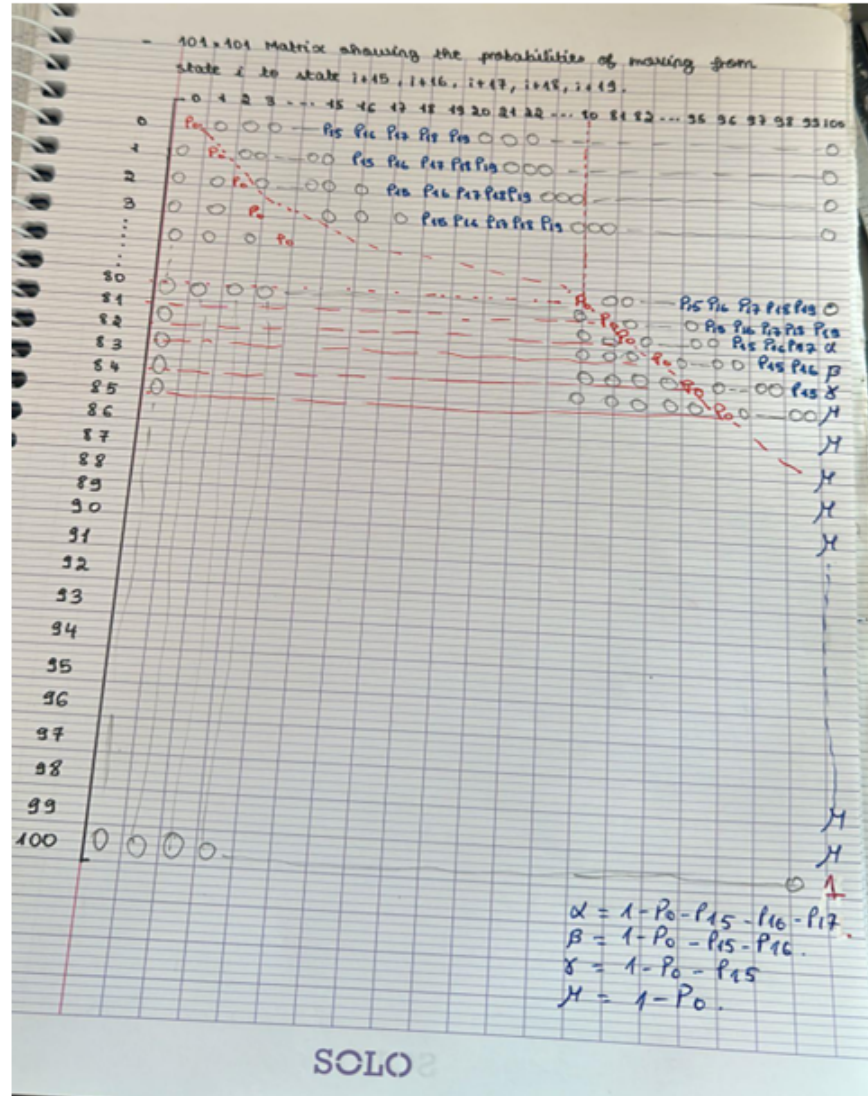 - 101×101 Matrix showing the probabilities of moving from
state i to state i+15, i+16, i+17, i+18, i+19.
0 1 2 3 --- 15 16 17 18 19 20 21 22 --- 80 81 82 --- 95 96 97 98 99 100
0 P0 0 0 0 — P15 P16 P17 P18 P19 0 0 0 — 0
1 0 P0 0 0 --- 0 0 P15 P16 P17 P18 P19 0 0 0 — 0
2 0 0 P0 0 --- 0 0 0 P15 P16 P17 P18 P19 0 0 0 — 0
3 0 0 P0 0 0 0 P15 P16 P17 P18 P19 0 0 0 — 0
0 0 0 P0
80 0 0 0 0 P0 0 0 — P15 P16 P17 P18 P19 0
81 0 0 P0 0 P15 P16 P17 P18 P19
82 0 0 0 P0 0 — 0 0 P15 P16 P17 α
83 0 0 0 0 P0 0 --- 0 0 P15 P16 β
84 0 0 0 0 0 P0 0 --- 0 0 P15 γ
85 0 0 0 0 0 P0 0 — 0 0 μ
86 μ
87 μ
88 μ
89 μ
90
91
92
93
94
95
96
97
98
99 μ
μ
100 0 0 0 0 — 0 1
α = 1-P0-P15-P16-P17.
β = 1-P0-P15-P16.
γ = 1-P0-P15
μ = 1-P0.
SOLO